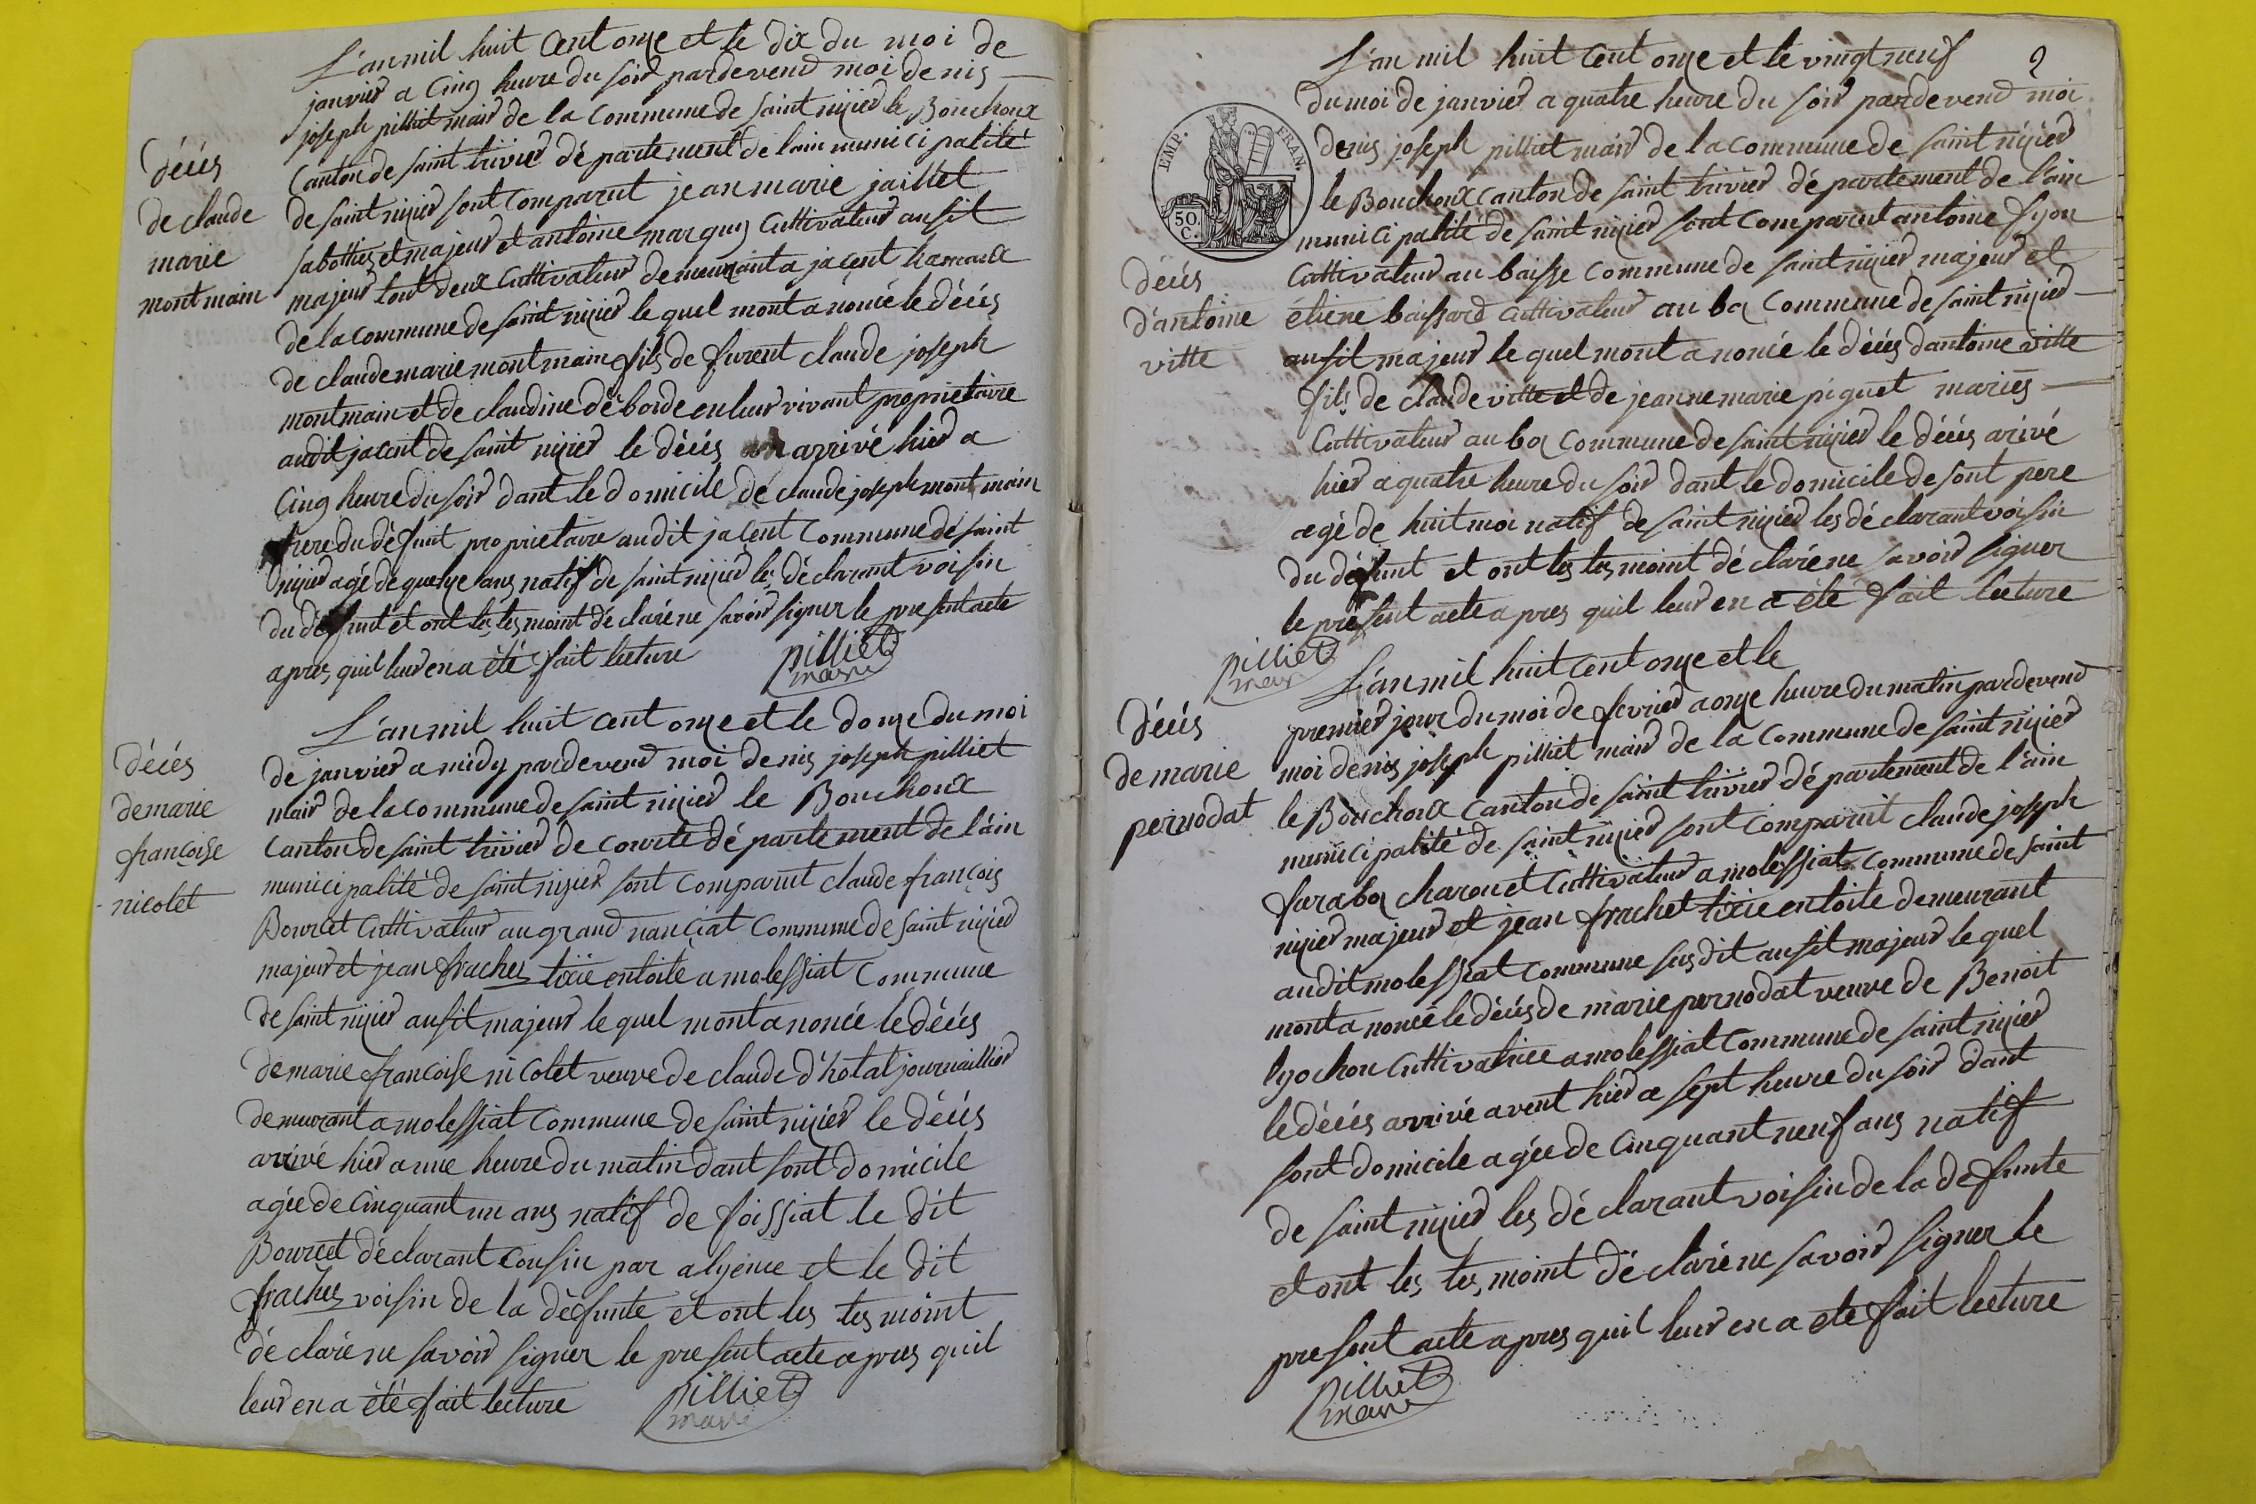 L'an mil huit cent onze et le dix du moi de
janvier a cinq heure du soir pardevend moi denis
joseph pilliet mair de la commune de saint nizier le Bouchoux
canton de saint trivier département de lain municipalité
de saint nizier sont comparut jean marie jaillet
sabottier et majeur et antoine marquis cultivateur ausit
majeur tout deux cultivateur demeurant a jacent hamaux
de la commune de saint nizier le quel mont anoncé le décés
de claude marie montmain fils de furent claude joseph
montmain et de claudine déborde en leur vivant proprietaire
audit jacent de saint nizier le décés arrivé hier a
cinq heure du soir dant le domicile de claude joseph montmain
frere du défunt proprietaire audit jacent commune de saint
nizier agé de quatze ans natif de saint nizier les déclarant voisin
du défunt et ont les tesmoint déclaré ne savoir signer le present acte
apres quil leur en a été fait lecture
pilliet
maire
décés
de claude
marie
montmain
L'an mil huit cent onze et le douze du moi
de janvier a midy pardevend moi denis joseph pilliet
mair de la commune de saint nizier le Bouchoux
canton de saint trivier de courte département de l'ain
municipalité de saint nizier sont comparut claude françois
Bourcet cultivateur au grand nanciat commune de saint nizier
majeur et jean frachet tixie en toile a molessiat commune
de saint nizier ausit majeur le quel mont anoncé le décés
de marie francoise nicolet veuve de claude d'hotal journaillier
demeurant a molessiat commune de saint nizier le décés
arrivé hier a une heure du matin dant sont domicile
agée de cinquant un ans natif de foissiat le dit
Bourcet déclarant cousin par alyence et le dit
frachet voisin de la défunte et ont les tesmoint
déclaré ne savoir signer le present acte apres quil
leur en a été fait lecture
pilliet
maire
décés
de marie
françoise
nicolet
2
EMP. FRAN.
50
C.
L'an mil huit cent onze et le vingt neuf
du moi de janvier a quatre heure du soir pardevend moi
denis joseph pilliet mair de la commune de saint nizier
le Bouchoux canton de saint trivier département de l'ain
municipalité de saint nizier sont comparut antoine fyon
cultivateur au baisse commune de saint nizier majeur et
étiene baissard cultivateur au boz commune de saint nizier
ausit majeur le quel mont anoncé le décés dantoine vitte
fils de claude vitte et de jeanne marie piquet mariés
cultivateur au boz commune de saint nizier le décés arivé
hier a quatre heure du soir dant le domicile de sont pere
agé de huit moi natif de saint nizier les déclarant voisin
du défunt et ont les tesmoint déclaré ne savoir signer
le present acte apres quil leur en a été fait lecture
pilliet
maire
décés
d'antoine
vitte
L'an mil huit cent onze et le
premier jour du moi de fevrier a onze heure du matin pardevend
moi denis joseph pilliet mair de la commune de saint nizier
le Bouchoux canton de saint trivier département de l'ain
municipalité de saint nizier sont comparut claude joseph
faraboz charouet cultivateur a molessiat commune de saint
nizier majeur et jean frachet tixie en toile demeurant
audit molessiat commune susdit ausit majeur le quel
mont anoncé le décés de marie pernodat veuve de Benoit
lyochon cultivatrice a molessiat commune de saint nizier
le décés arrivé avent hier a sept heure du soir dant
sont domicile agée de cinquant neuf ans natif
de saint nizier les déclarant voisin de la defunte
et ont les tesmoint déclaré ne savoir signer le
present acte apres quil leur en a été fait lecture
pilliet
maire
décés
de marie
pernodat